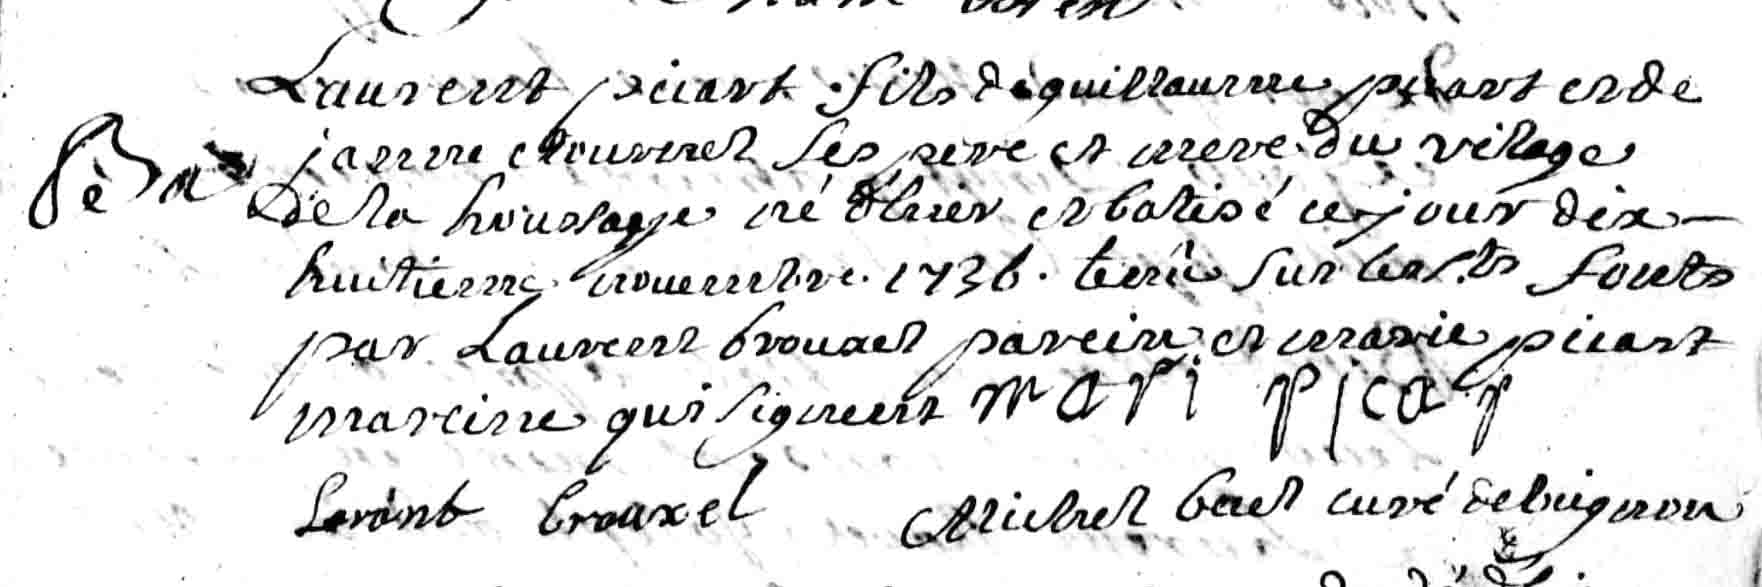 Laurent picart fils de guillaume picart et de
janne elouvnel ses pere et mere du vilage
De la houssaye né d'hier et batisé ce jour dix-
huitieme novembre 1736. tenu sur les sts fonts
par Laurent brouxel parein et marie picart
mareine qui signent mari picar
Lorant brouxel Michel boul curé de buignon